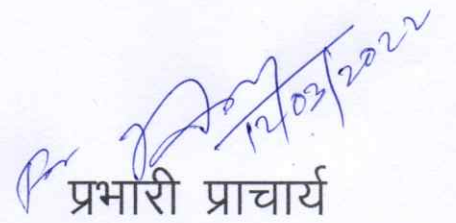 12/03/2022
प्रभारी प्राचार्य